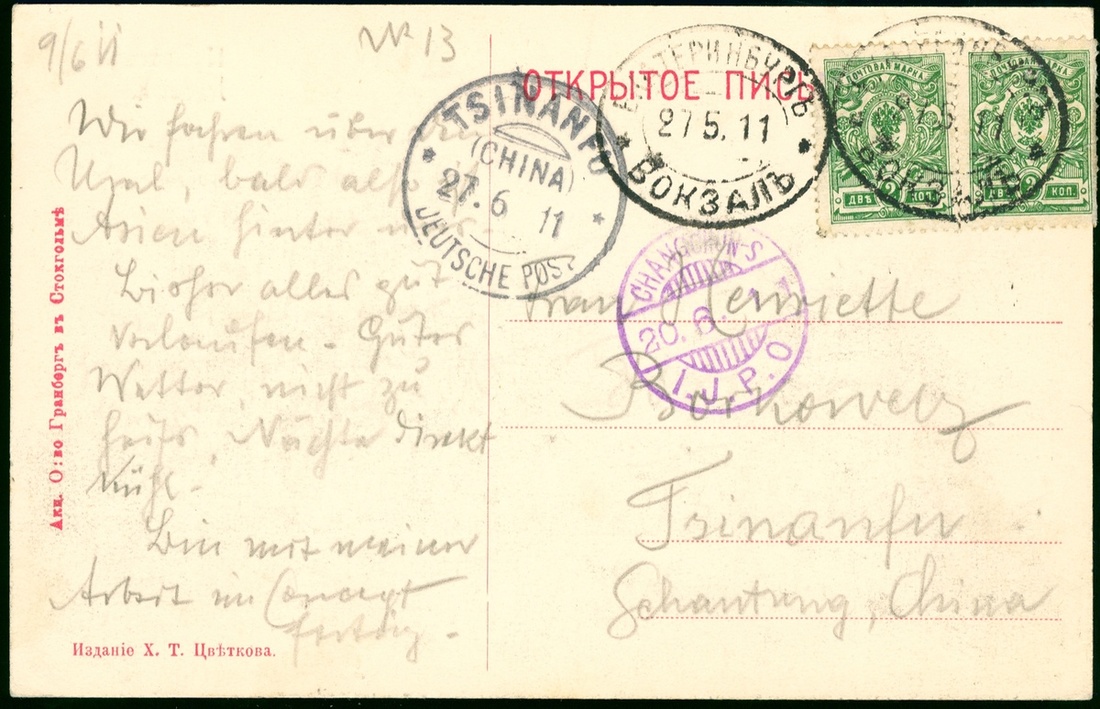 9/6 11
№ 13
ОТКРЫТОЕ ПИСЬ
TSINANFU
(CHINA)
27.6 11
DEUTSCHE POST
ЕКАТЕРИНБУРГЪ
27 5. 11
ВОКЗАЛЪ
27 5. 11
ВОКЗАЛЪ
ПОЧТОВАЯ МАРКА
2
ДВѢ КОП.
ПОЧТОВАЯ МАРКА
2
ДВѢ КОП.
CHANGCHUN-S
20. 6. 11
I.J.P.O
Wir fahren über den
Ural, bald also
Asien hinter uns.
Bisher alles gut
verlaufen - Gutes
Wetter, nicht zu
heiß, Nächte direkt
kühl -
Bin mit meiner
Arbeit im Concept
fertig -
Frau Henriette
Tsinanfu
Schantung, China
Акц. О:во Гранбергъ въ Стокгольмѣ
Изданіе Х. Т. Цвѣткова.